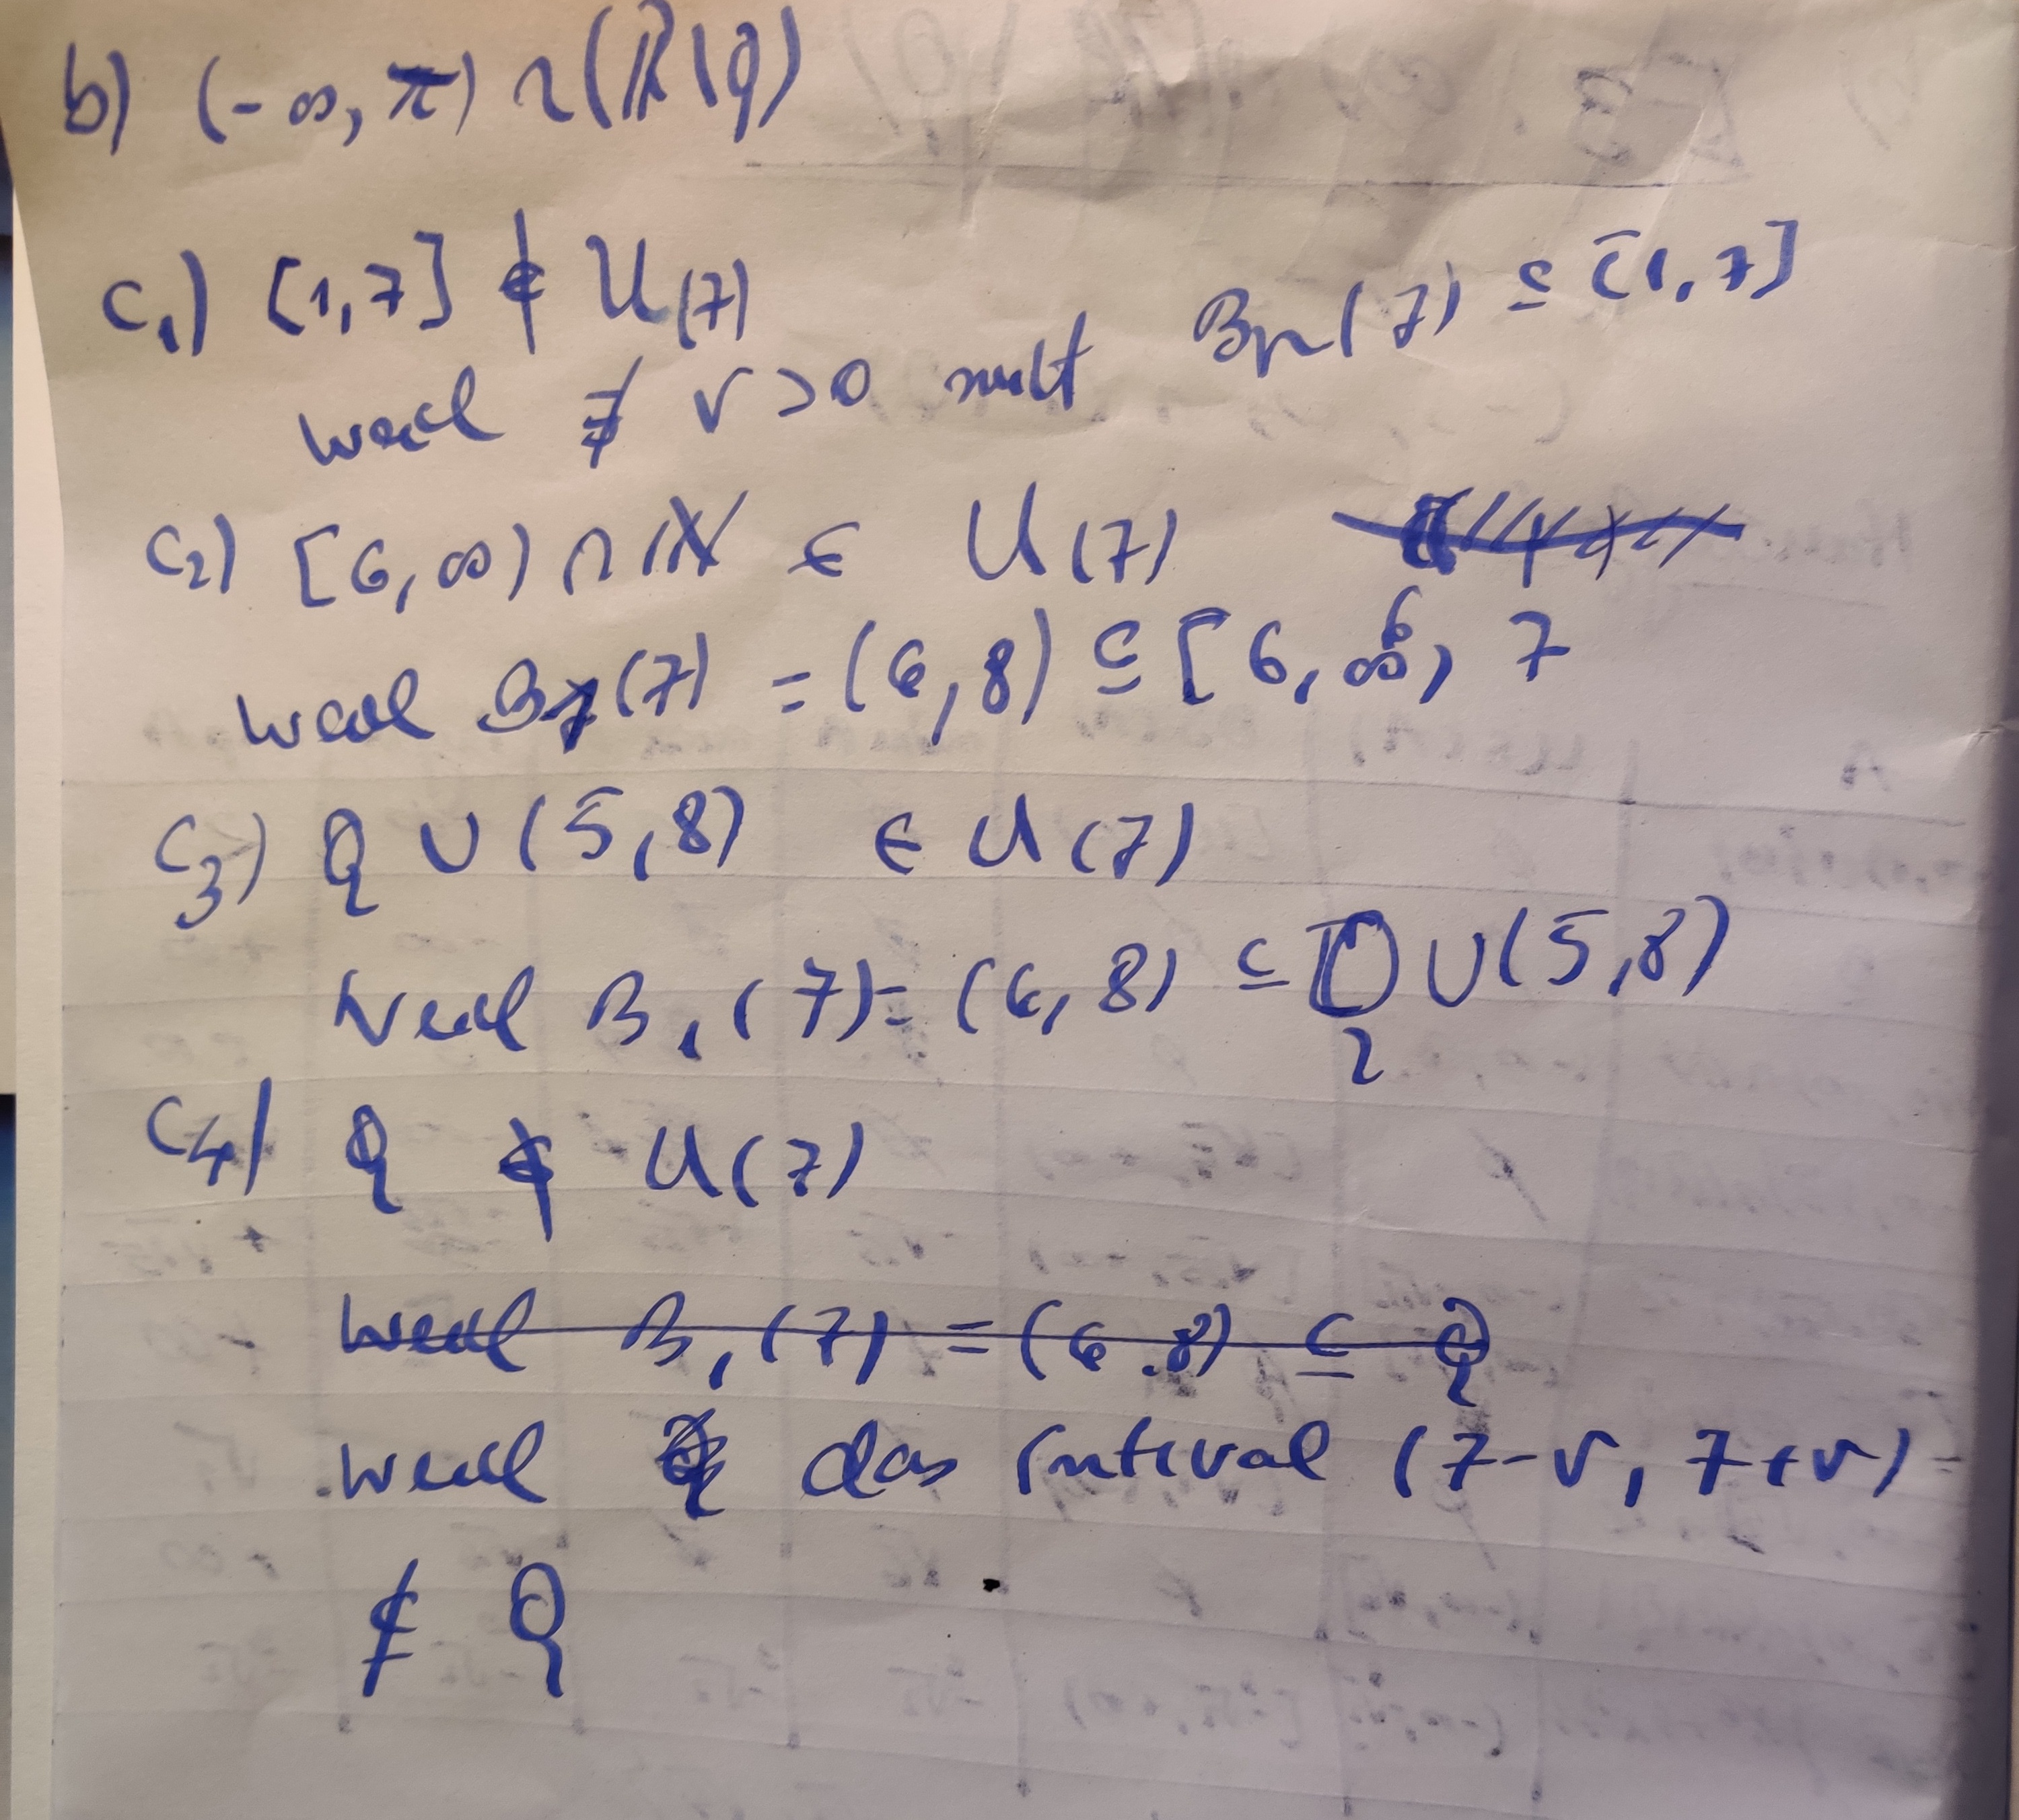 b) (-∞, π) ∩ (ℝ \ ℚ)
c₁) [1,7] ∉ U(7)
weil ∄ r > 0 mit Bᵣ(7) ⊆ [1,7]
c₂) [6,∞) ∩ ℕ ∈ U(7)
weil B₁(7) = (6,8) ⊆ [6, ∞), 7
c₃) ℚ ∪ (5,8) ∈ U(7)
weil B₁(7) = (6,8) ⊆ ℚ ∪ (5,8)
c₄) ℚ ∉ U(7)
weil B₁(7) = (6.8) ⊆ ℚ
weil das Interval (7-r, 7+r)
⊈ ℚ